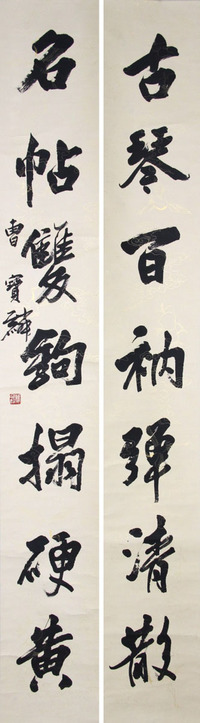 古琴百衲彈清散
名帖雙鉤搨硬黃
曹寶麟